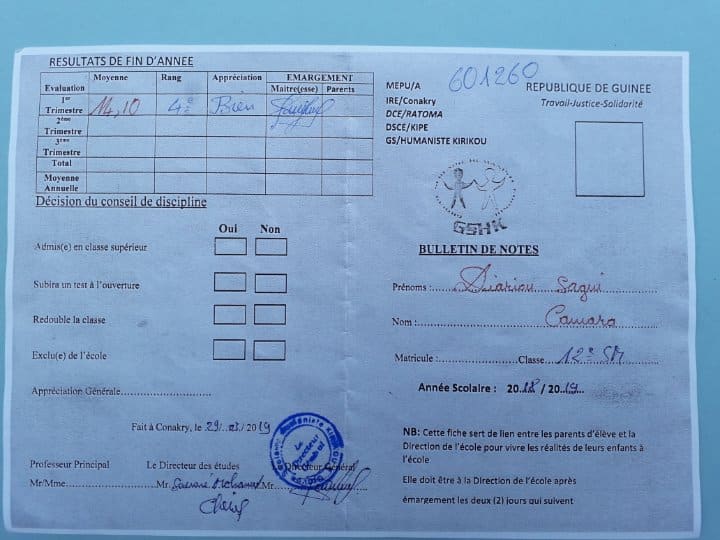 RESULTATS DE FIN D'ANNEE
Evaluation Moyenne Rang Appréciation EMARGEMENT
Maitre(esse) Parents
1er Trimestre 14,10 4e Bien
2ème Trimestre
3ème Trimestre
Total
Moyenne Annuelle
Décision du conseil de discipline
Oui Non
Admis(e) en classe supérieur
Subira un test à l'ouverture
Redouble la classe
Exclu(e) de l'école
Appréciation Générale
Fait à Conakry, le 29/03/2019
Professeur Principal Le Directeur des études Directeur Général
Mr/Mme. Mr Mr
MEPU/A 601260 REPUBLIQUE DE GUINEE
IRE/Conakry Travail-Justice-Solidarité
DCE/RATOMA
DSCE/KIPE
GS/HUMANISTE KIRIKOU
GSHK
BULLETIN DE NOTES
Prénoms : Diariou Sagui
Nom : Camara
Matricule : Classe 12e SM
Année Scolaire : 2018 / 2019
NB: Cette fiche sert de lien entre les parents d'élève et la
Direction de l'école pour vivre les réalités de leurs enfants à
l'école
Elle doit être à la Direction de l'école après
émargement les deux (2) jours qui suivent